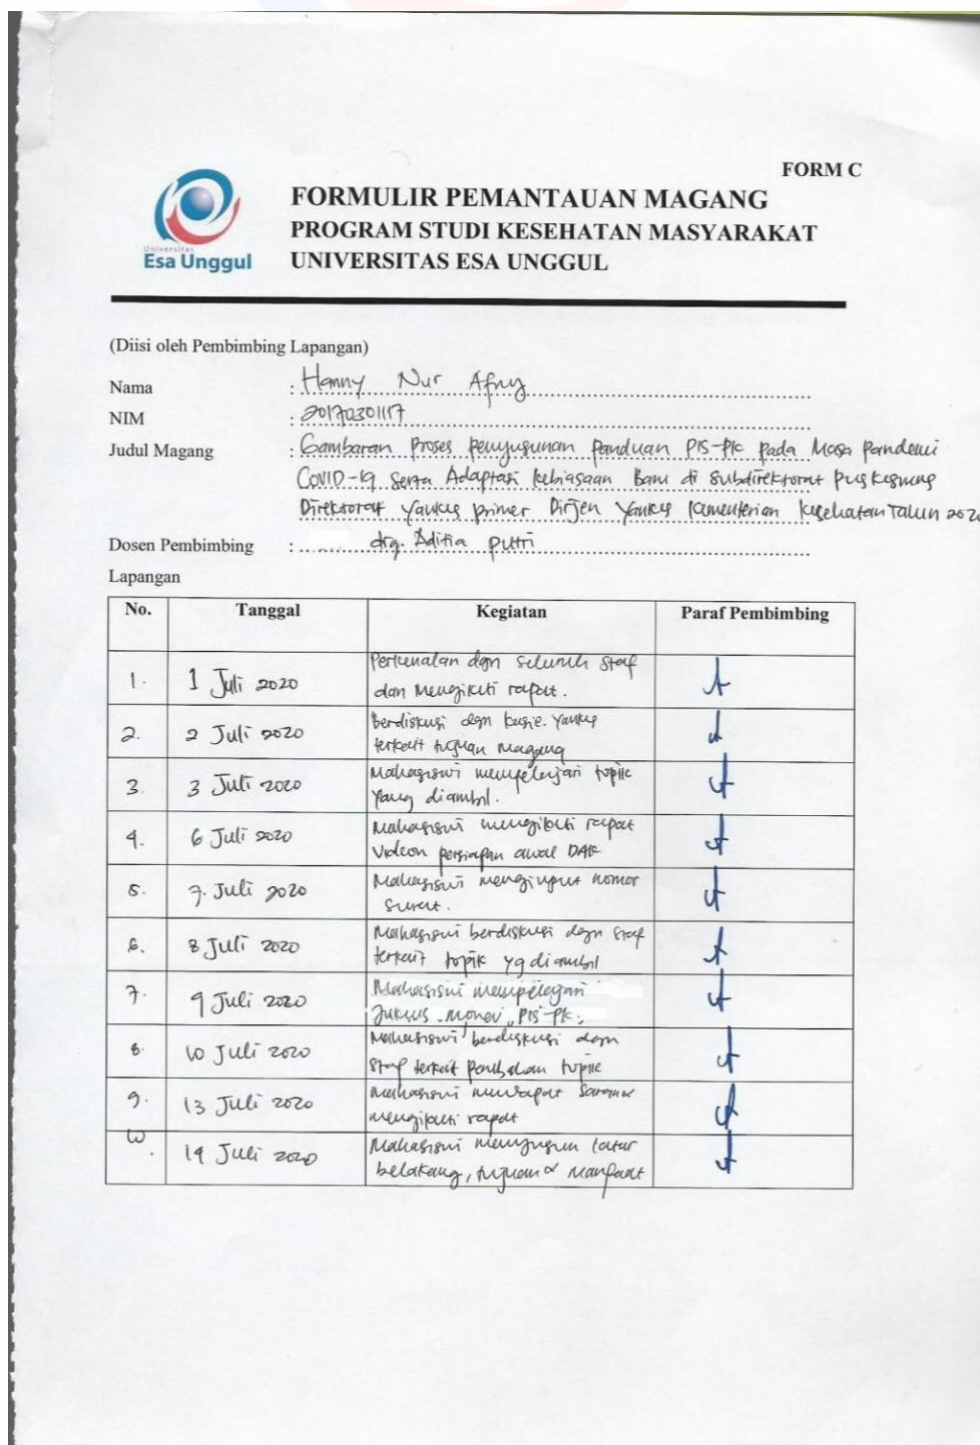 FORM C
FORMULIR PEMANTAUAN MAGANG
PROGRAM STUDI KESEHATAN MASYARAKAT
UNIVERSITAS ESA UNGGUL
Universitas
Esa Unggul
(Diisi oleh Pembimbing Lapangan)
Nama : Hanny Nur Afny
NIM : 20170301117
Judul Magang : Gambaran Proses Penyusunan Panduan PIS-PK pada Masa Pandemi
COVID-19 serta Adaptasi Kebiasaan Baru di Subdirektorat Puskesmas
Direktorat Yankes Primer Dirjen Yankes Kementerian Kesehatan Tahun 2020
Dosen Pembimbing : drg. Aditia Putri
Lapangan
No. Tanggal Kegiatan Paraf Pembimbing
1. 1 Juli 2020 Perkenalan dgn seluruh staf
dan Mengikuti rapat.
2. 2 Juli 2020 berdiskusi dgn kasie. Yankes
terkait tujuan Magang
3. 3 Juli 2020 Mahasiswi mempelajari topik
yang diambil.
4. 6 Juli 2020 Mahasiswi mengikuti rapat
Vidcon persiapan awal DAK
5. 7. Juli 2020 Mahasiswi menginput nomor
Surat.
6. 8 Juli 2020 Mahasiswi berdiskusi dgn staf
terkait topik yg diambil
7. 9 Juli 2020 Mahasiswi mempelajari
Juknis monev PIS-PK.
8. 10 Juli 2020 Mahasiswi berdiskusi dgn
staf terkait topik
9. 13 Juli 2020 Mahasiswi
mengikuti rapat
10. 14 Juli 2020 Mahasiswi menyusun latar
belakang, tujuan & manfaat